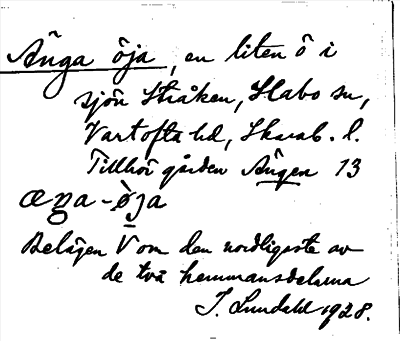 Änga öja, en liten ö i
sjön Stråken, Habo sn,
Vartofta hd, Skarab. l.
Tillhör gården Ängen 13
æŋa-ö̀ja
Belägen V om den nordligaste av
de två hemmansdelarna
J. Lundahl 1928.